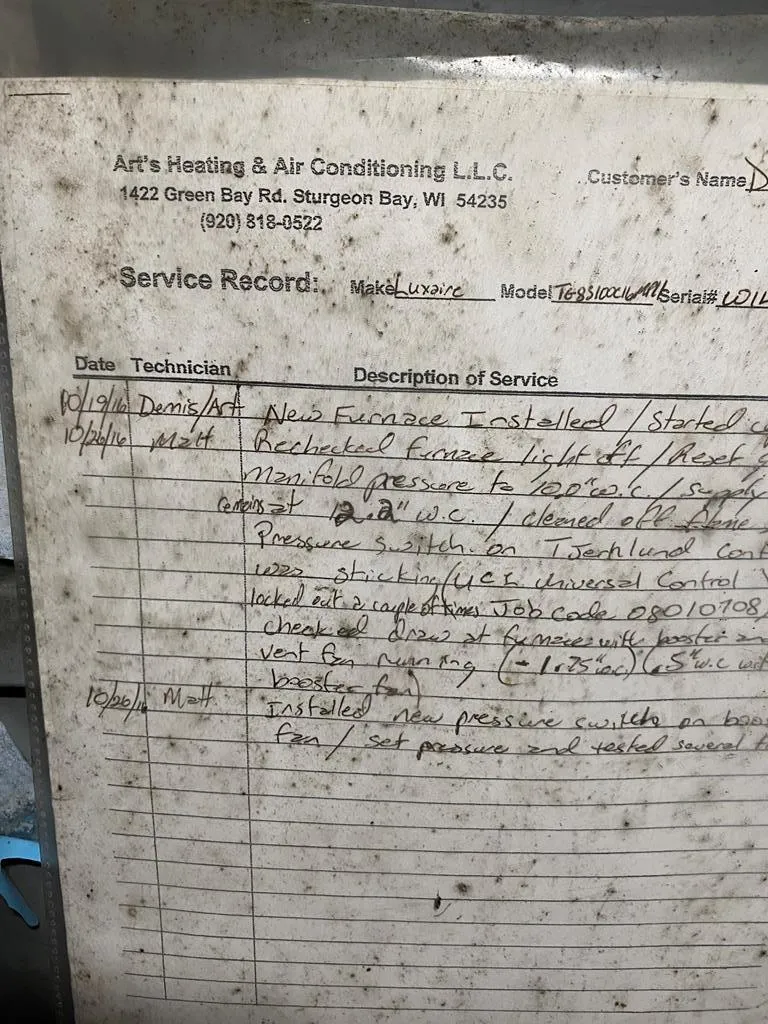 Art's Heating & Air Conditioning L.L.C.
Customer's Name D
1422 Green Bay Rd. Sturgeon Bay, WI 54235
(920) 818-0522
Service Record: Make Luxaire Model Serial#
Date Technician Description of Service
10/19/16 Dennis/Art New Furnace Installed / Started
10/26/16 Matt Rechecked furnace light off / Reset
Manifold pressure to 10.0" w.c. / supply
remains at 12.2" w.c. / cleaned off flame
Pressure switch on Tjerhlund Cont
was sticking / UCI universal Control
locked out a couple of times Job Code 08010708/
checked draw at furnace with booster an
vent fan running (-1.75"w.c.) (.5"w.c wit
booster fan)
10/26/16 Matt Installed new pressure switch on boos
fan / set pressure and tested several t